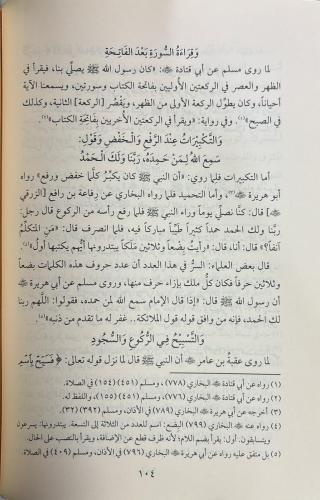 وَقِرَاءَةُ السُّورَةِ بَعْدَ الْفَاتِحَةِ
لما روى مسلم عن أبي قتادة ﷺ: «كان رسول الله ﷺ يصلّي بنا، فيقرأ في
الظهر والعصر في الركعتين الأوليين بفاتحة الكتاب وسورتين، ويسمعنا الآية
أحياناً، وكان يطوّل الركعة الأولى من الظهر، ويَقْصُر [الركعة] الثانية، وكذلك
في الصبح»(١). وفي رواية: «ويقرأ في الركعتين الأخريين بفاتحةِ الكتاب»(٢).
وَالتَّكْبِيرَاتُ عِنْدَ الرَّفْعِ وَالْخَفْضِ وَقَوْلُ:
سَمِعَ اللهُ لِمَنْ حَمِدَهُ، رَبَّنَا وَلَكَ الْحَمْدُ
أما التكبيرات فلما روي: «أن النبي ﷺ كان يكبِّرُ كلَّما خفض ورفع» رواه
أبو هريرة ﷺ(٣)، وأما التحميد فلما رواه البخاري عن رفاعة بن رافع [الزرقي
] قال: كنَّا نصلّي يوماً وراء النبي ﷺ فلما رفع رأسه من الركوع قال رجل:
ربَّنا ولك الحمد حمداً كثيراً طيِّباً مباركاً فيه، فلما انصرف قال: «مَن المتكلّمُ
آنفاً؟» قال: أنا، قال: «رأيت بِضعاً وثلاثين مَلَكاً يبتدرونها أيهم يكتبها أول»(٤).
قال بعض العلماء: السرُّ في هذا العدد أن عدد حروف هذه الكلمات بضعاً
وثلاثين حرفاً فكان كلُّ ملك بإزاء حرف منها، وروى مسلم عن أبي هريرة
أن رسول الله ﷺ قال: «إذا قال الإمام سمع الله لمن حمده، فقولوا: اللّهم ربنا
لك الحمد، فإنه من وافق قوله قول الملائكة.. غفر له ما تقدم من ذنبه»(٥).
وَالتَّسْبِيحُ فِي الرُّكُوعِ وَالسُّجُودِ
لما روى عقبةُ بن عامر أن النبي ﷺ قال لما نزل قوله تعالى: ﴿ فَسَبِّحْ بِاسْمِ
(١) رواه عن أبي قتادة البخاري (٧٧٨)، ومسلم (٤٥١) (١٥٤) في الصلاة.
(٢) رواه عن أبي قتادة البخاري (٧٧٦)، ومسلم (٤٥١) (١٥٥)، واللفظ له.
(٣) أخرجه عن أبي هريرة البخاري (٧٨٩) في الأذان، ومسلم (٣٩٢) (٣٢).
(٤) رواه عنه البخاري (٧٩٩) البضع: اسم للعدد من الثلاثة إلى التسعة. يبتدرونها: يسرعون
ويتسابقون. أول: يقرأ بضم اللام؛ لأنه ظرف قطع عن الإضافة، ويقرأ بالنصب على الحال.
(٥) بل متفق عليه رواه عن أبي هريرة البخاري (٧٩٦) في الأذان، ومسلم (٤٠٩) في الصلاة.
١٠٤